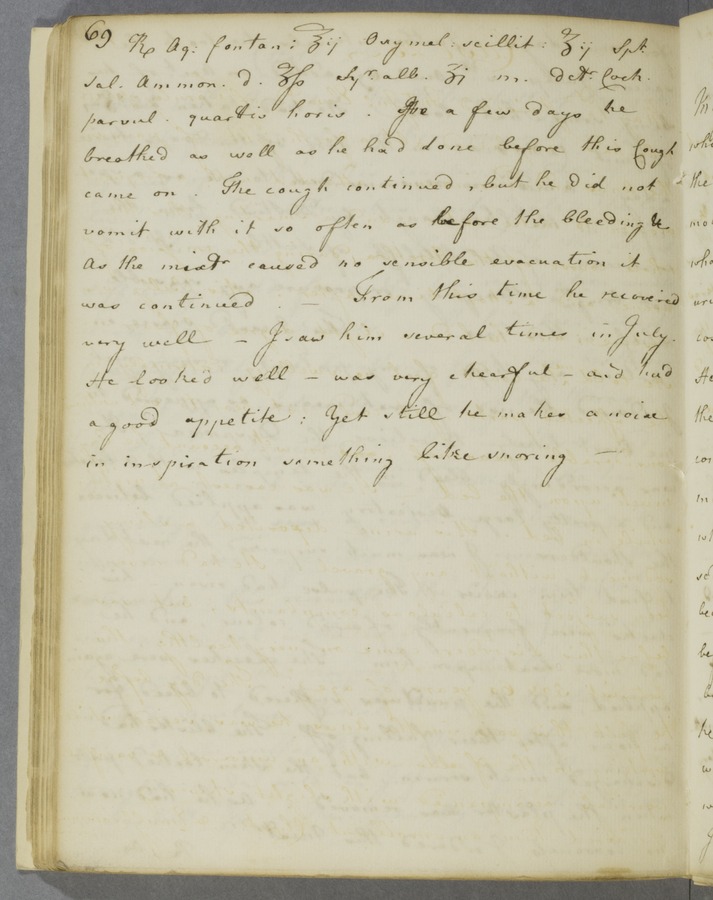 69 ℞ Aq: fontan: ℥ij Oxymel: scillit: ℥ij Spt
sal. Ammon. d. ℥ſs Syr. alb. ℥j m. detr Coch.
parvul. quartis horis. a few days he
breathed as well as he had done before this Cough
came on. The cough continued, but he did not
vomit with it so often as before the bleeding &
As the mixtr caused no sensible evacuation it
was continued. — From this time he recovered
very well — I saw him several times in July.
He looked well — was very chearful — and had
a good appetite: Yet still he makes a noise
in inspiration something like snoring —